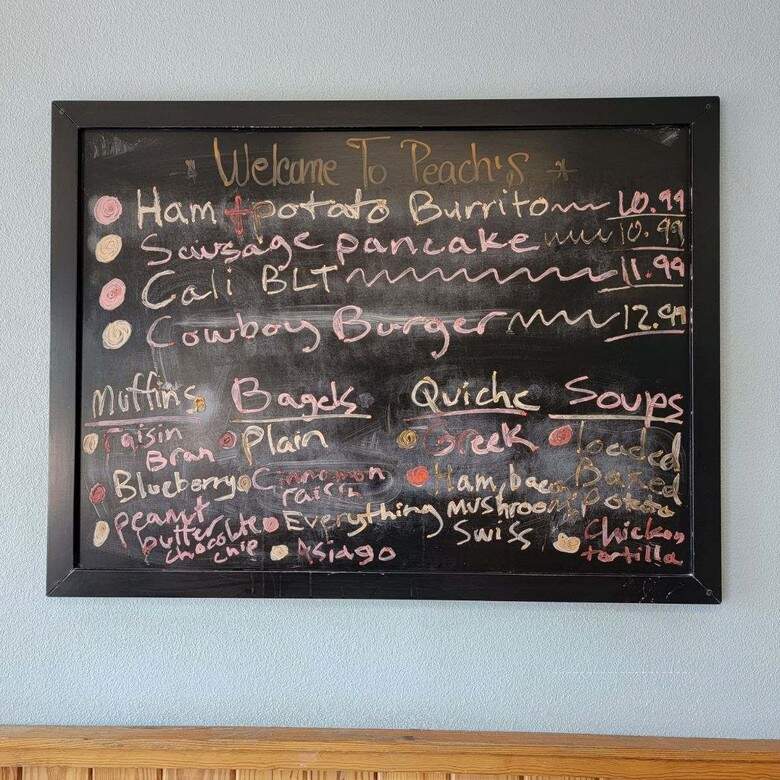 Welcome To Peach's
Ham + potato Burrito 10.99
Sausage pancake 10.99
Cali BLT 11.99
Cowboy Burger 12.99
Muffins
Raisin
Bran
Blueberry
Peanut
butter
chocolate
chip
Bagels
Plain
Cinnamon
raisin
Everything
Asiago
Quiche
Greek
Ham, bacon,
mushroom,
Swiss
Soups
loaded
Baked
potato
Chicken
tortilla